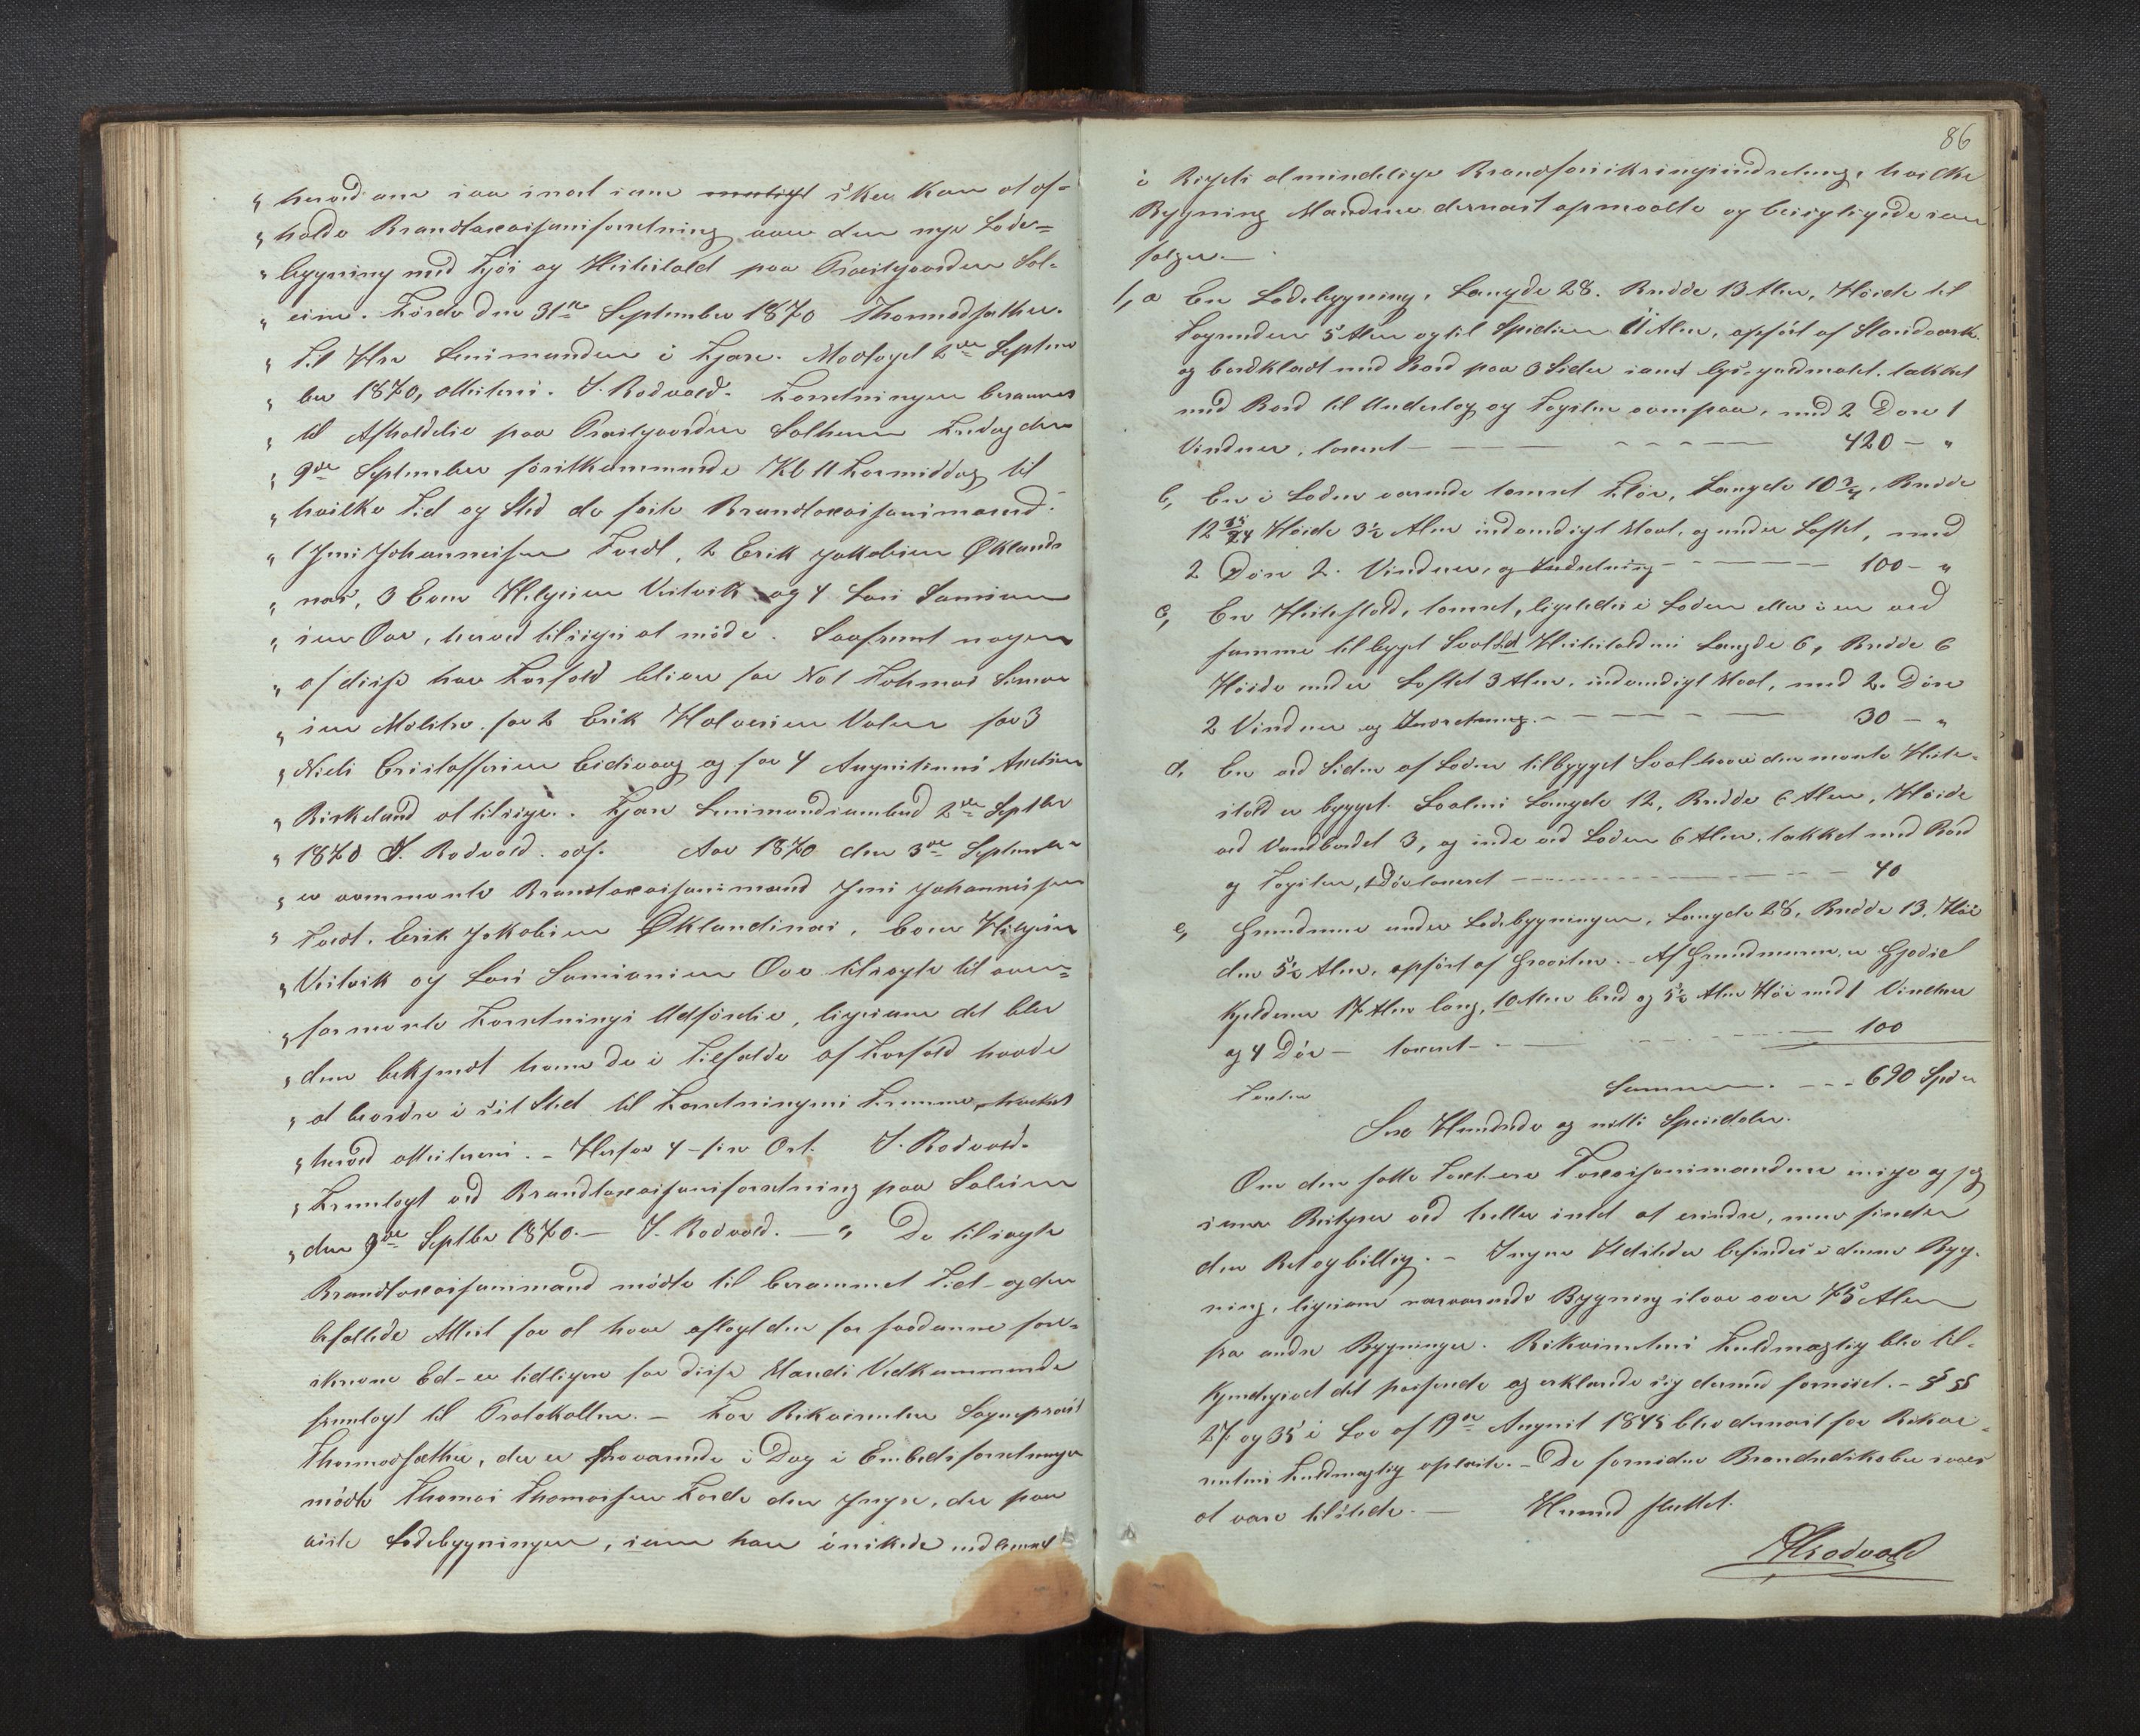 „ herved om saa snart som muligt skee kan at af-
„ holde Brandtaxasjonsforretning over den nye Lade-
„ bygning med Fjøs og Hestestald paa Præstgaarden Sol-
„ eim. Førde den 31te September 1870 Thormodsæther.
„ Til Hr Lensmanden i Fjære. Modtaget 2den Septem
„ ber 1870, Attesteres. J. Rodvold. Forretningen berammes
„ til Afholdelse paa Præstgaarden Solheim Fredag den
„ 9de September førstkommende Kl 11 Formiddag til
„ hvilke Tid og Sted de faste Brandtaxasjonsmænd:
„ 1 Jens Johannessen Tvedt, 2 Erik Jakobsen Øklands
„ næs, 3 Even Helgesen Vestvik og 4 Lars Samson
„ sen Ove, herved tilsiges at møde. Saafremt nogen
„ af disse har Forfald bliver for No 1 Tohmas Simon
„ sen Mølstre for 2 Erik Halvorsen Valen for 3
„ Niels Cristoffersen Eidsvaag og for 4 Augustinus Andersen
„ Birkeland at tilsige. Fjære Lensmandsombud 2den Septbr
„ 1870 J. Rodvold. cst. Aar 1870 den 3die September
„ er ovennævnte Brandtaxasjonsmænd Jens Johannessen
„ Tvedt, Erik Jakobsen Øklandsnæs, Even Helgesen
„ Vestvik og Lars Samsonsen Ove tilsagte til oven-
„ formeldte Forretnings Udførelse, ligesom det blev
„ dem bekjendt hvem de i Tilfælde af Forfald havde
„ at beordre i sit Sted til Forretningens Fremme, hvilket
„ herved attesteres. – Herfor 4 – fire Ort. J. Rodvold.
„ Fremlagt ved Brandtaxasjonsforretning paa Soleim
„ den 9de Septbr 1870. – J. Rodvold. – „ De tilsagte
Brandtaxasjonsmænd mødte til berammet Tid – og den
befalede Attest for at have aflagt den for saadanne fore-
skrevne Ed – er tidligere for disse Mænds Vedkommende
fremlagt til Protokollen. – For Rekvirenten Sogneprest
Thormodsæther, der er fraværende i Dag i Embedsforretninger
mødte Thomas Thomassen Førde den Yngre, der paa
viste Ladebygningen, som han ønskede indlemmet
86
i Rigets almindelige Brandforsikringsindretning, hvilke
Bygning Mændene dernæst opmaalte og besigtigede som
følger. –
1, a En Ladebygning, Længde 28. Bredde 13 Alen, Høide til
Tagrenden 5 Alen og til Spidsen 11 Alen, opført af Standværk
og bordklædt med Bord paa 3 Sider samt lys grødmalet. tækket
med Bord til Underlag og Tagsten ovenpaa, med 2 Døre 1
Vindue, taxeret – – – – – – – 420 – „
b, En i Laden værende tømret Fløs, Længde 10 3/4, Bredde
12 15/24 Høide 3½ Alen indvendigt Maal, og under Loftet, med
2 Døre 2. Vinduer, og Indredning – – – – – – 100 – „
c, En Hestestald, tømret, ligeledes i Laden eller i en ved
samme tilbygget Sval Hestestaldens Længde 6, Bredde 6
Høide under Loftet 3 Alen, indvendigt Maal, med 2. Døre
2 Vinduer og Indredning. – – – – – – 30 – „
d, En ved Siden af Laden tilbygget Sval hvori den nævnte Heste-
stald er bygget. Svalens Længde 12, Bredde 6 Alen, Høide
ved Vandbordet 3, og inde ved Laden 6 Alen, tækket med Bord
og Tagsten, 1 Dør taxeret – – – – – – – 40
e, Grundmur under Ladebygningen, Længde 28, Bredde 13, Høi
den 5½ Alen, opført af Graasten. – Af Grundmuren er Gjødsel
Kjelderen 17 Alen lang, 10 Alen bred og 5½ Alen Høi med 1 Vindue
og 4 Dør – taxeret – – – – – – 100
Summen. – – – 690 Spdr
Sex Hundrede og nitti Speciedaler.
Om den satte Taxt ere Taxasjonsmændene enige og jeg
som Bestyrer ved heller intet at erindre, men finder
den Ret og billig. – Ingen Ildsteder befindes i denne Byg-
ning, ligesom nærværende Bygning staar over 75 Alen
fra andre Bygninger. Rekvirentens Fuldmægtig blev til-
kjendegivet det passerede og erklærede sig dermed fornøiet. – § §
27 og 35 i Lov af 19de August 1845 blev dernæst for Rekvi-
rentens Fuldmægtig oplæste. – De fornødne Brandredskaber svares
at være tilstede. – Hermed sluttet.
JRodvold